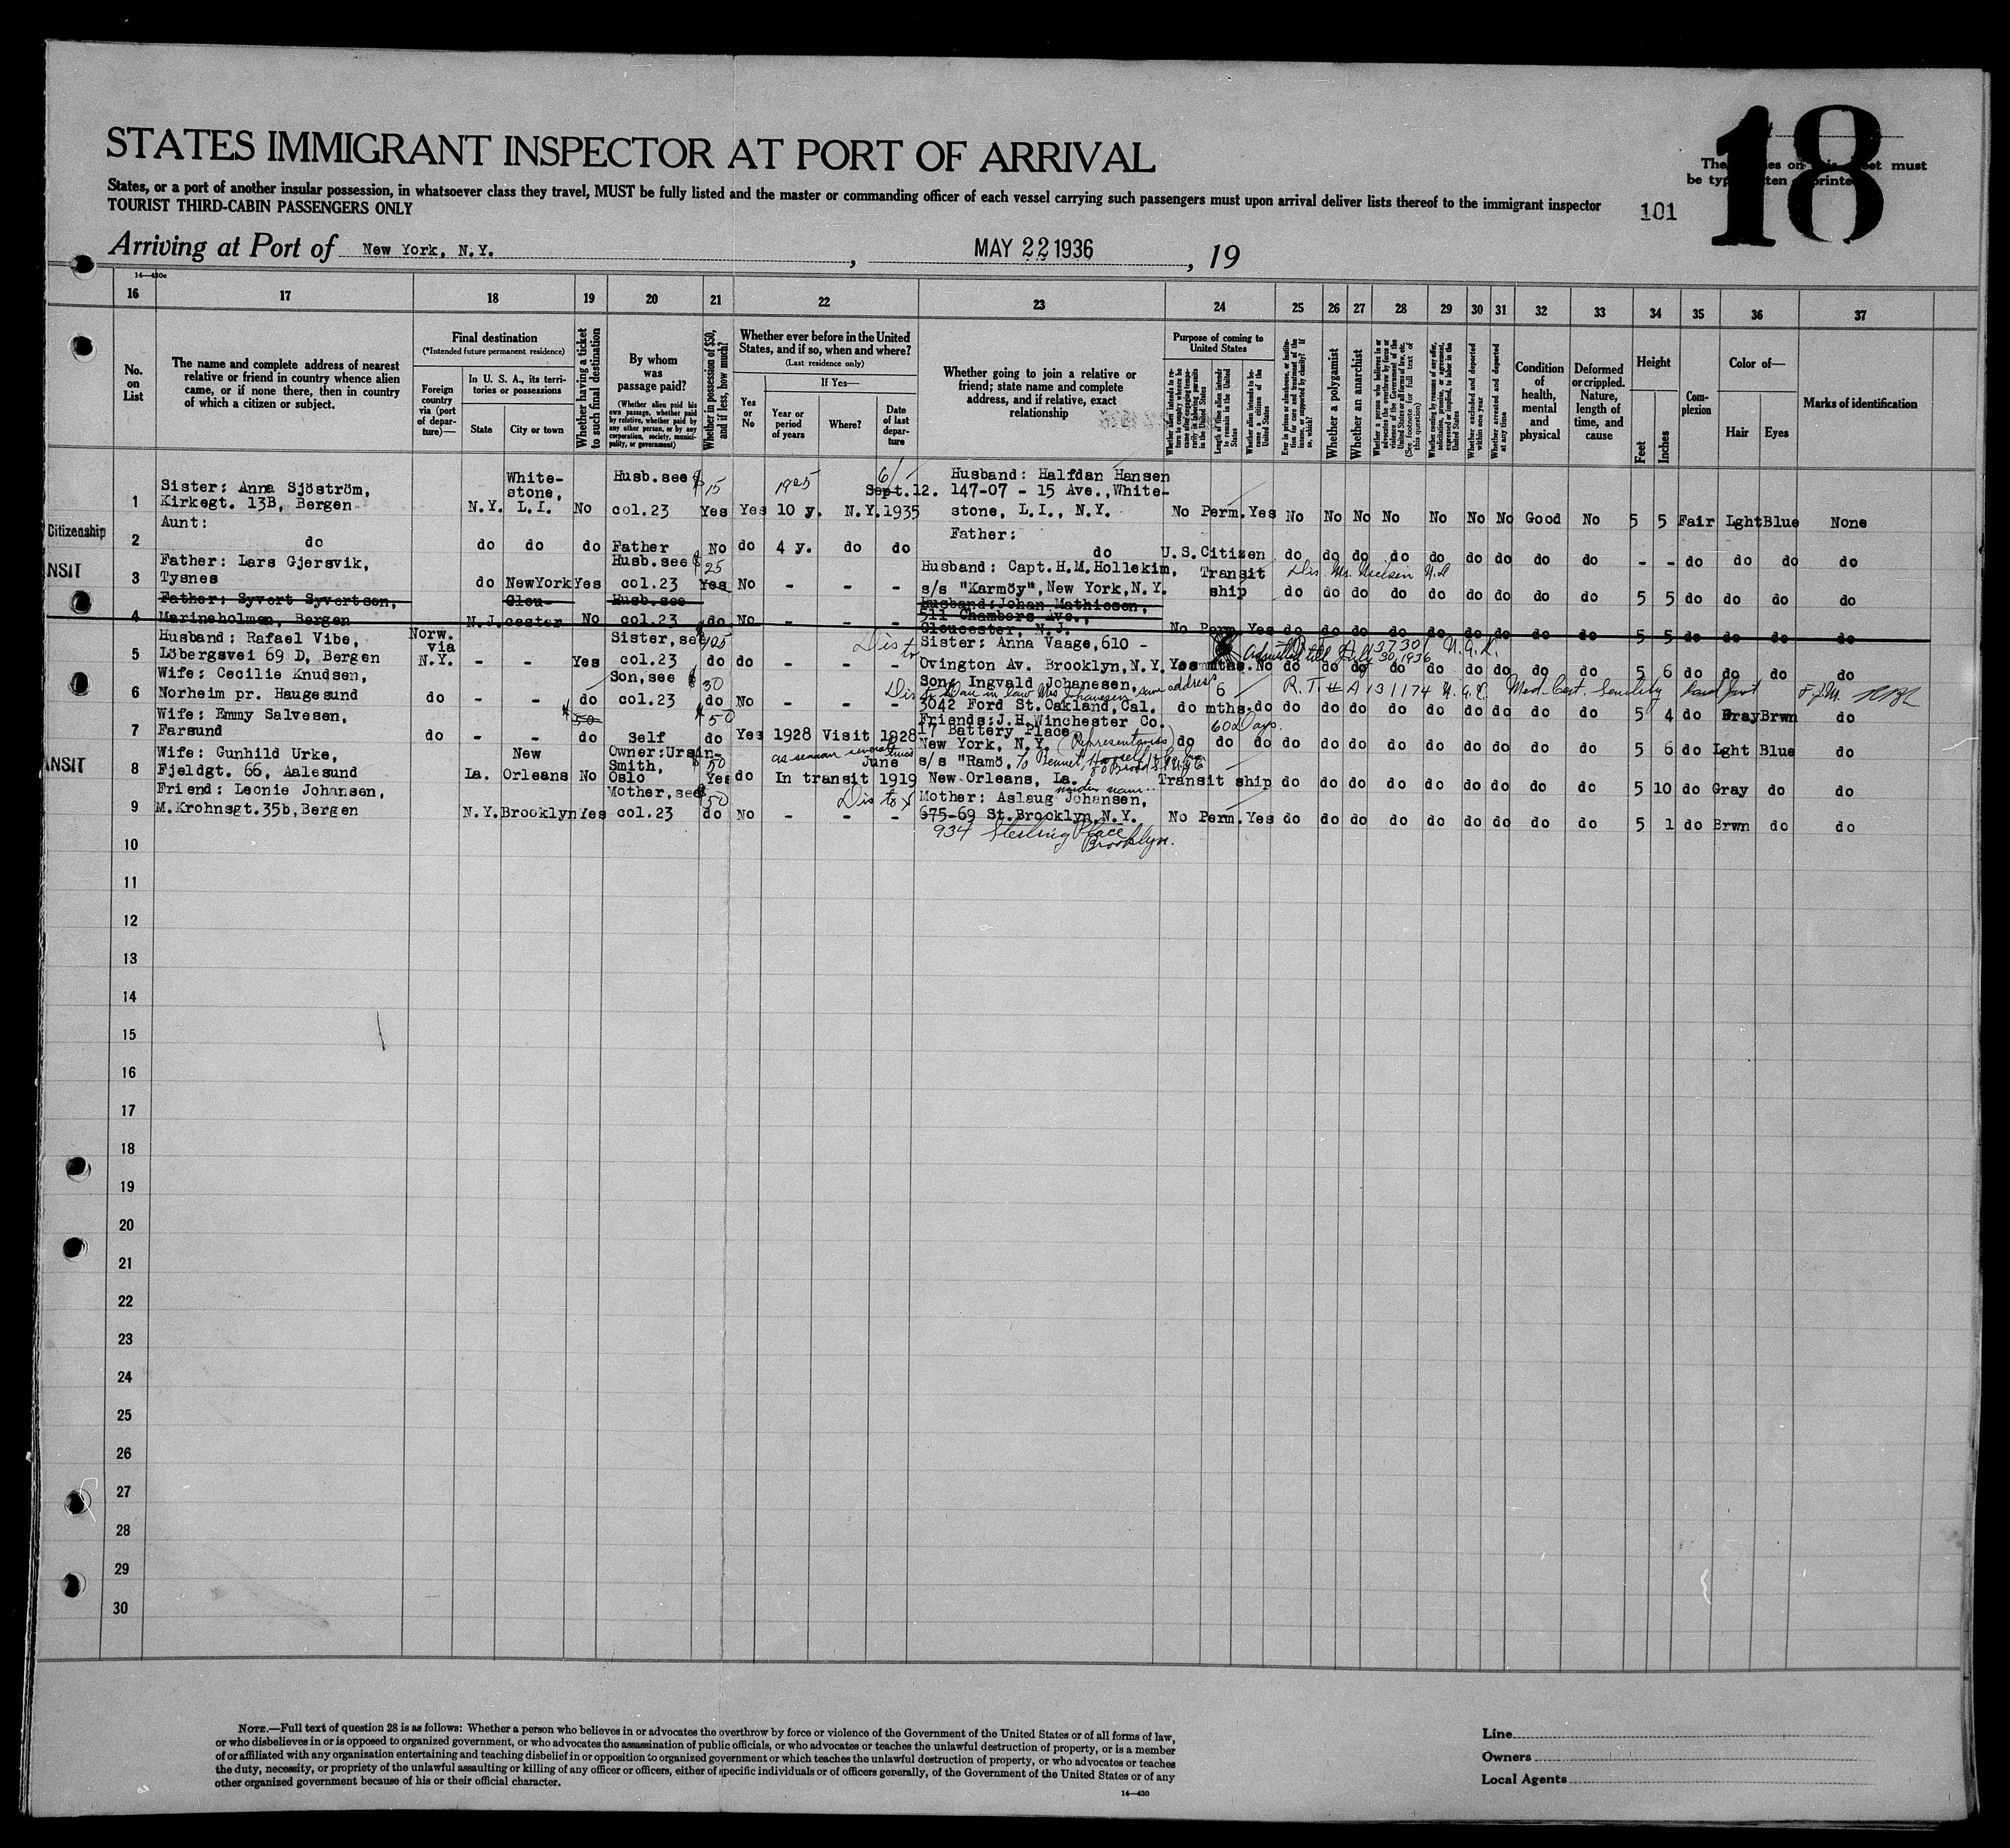 STATES IMMIGRANT INSPECTOR AT PORT OF ARRIVAL
18
States, or a port of another insular possession, in whatsoever class they travel, MUST be fully listed and the master or commanding officer of each vessel carrying such passengers must upon arrival deliver lists thereof to the immigrant inspector
TOURIST THIRD-CABIN PASSENGERS ONLY
101
Arriving at Port of New York, N.Y., MAY 22 1936, 19
14—430c
16 17 18 19 20 21 22 23 24 25 26 27 28 29 30 31 32 33 34 35 36 37
No. on List
The name and complete address of nearest relative or friend in country whence alien came, or if none there, then in country of which a citizen or subject.
Final destination
(*Intended future permanent residence)
Foreign country via (port of departure)—
In U. S. A., its territories or possessions
State
City or town
Whether having a ticket to such final destination
By whom was passage paid?
(Whether alien paid his own passage, whether paid by relative, whether paid by any other person, or by any corporation, society, municipality, or government)
Whether in possession of $50, and if less, how much?
Whether ever before in the United States, and if so, when and where?
(Last residence only)
Yes or No
If Yes—
Year or period of years
Where?
Date of last departure
Whether going to join a relative or friend; state name and complete address, and if relative, exact relationship
Purpose of coming to United States
Length of time alien intends to remain in the United States
Whether alien intends to become a citizen of the United States
Whether a polygamist
Whether an anarchist
(See footnote for full text of this question)
Whether excluded and deported within one year
Whether arrested and deported at any time
Condition of health, mental and physical
Deformed or crippled. Nature, length of time, and cause
Height
Feet
Inches
Complexion
Color of—
Hair
Eyes
Marks of identification
1 Sister: Anna Sjöström, Kirkegt. 13B, Bergen N.Y. White-stone, L.I. No Husb. see col.23 $15 Yes Yes 1925 10 y. N.Y. 6/ Sept.12. 1935 Husband: Halfdan Hansen 147-07 - 15 Ave., White-stone, L.I., N.Y. No Perm. Yes No No No No No No No Good No 5 5 Fair Lght Blue None
Citizenship
2 Aunt: do do do do Father No do 4 y. do do Father: do U.S. Citizen do do do do do do do do do - - do do do do
NSIT
3 Father: Lars Gjersvik, Tysnes do NewYork Yes Husb. see col.23 $25 Yes No - - - Husband: Capt. H.M. Hollekim, s/s "Karmöy", New York, N.Y. Transit ship do do do do do do do do do 5 5 do do do do
4 Father: Syvert Syvertsen, Marineholmen, Bergen N.J. Glou-cester No Husb. see col.23 do No - - - Husband: Johan Mathiesen, 511 Chambers Ave., Gloucester, N.J. No Perm. Yes do do do do do do do do do 5 5 do do do do
5 Husband: Rafael Vibe, Löbergsvei 69 D, Bergen Norw. via N.Y. - - Yes Sister, see col.23 do do - - - Sister: Anna Vaage, 610 - Ovington Av. Brooklyn, N.Y. Yes mths. No do do do do do do do do do 5 6 do do do do
Admitted till July 30, 1936
6 Wife: Cecilie Knudsen, Norheim pr. Haugesund do - - do Son, see col.23 $30 do No - - - Son: Ingvald Johanesen, 3042 Ford St. Oakland, Cal. do 6 mths. do do do do do do do do do do 5 4 do Gray Brwn do
same address R. T. # A 131174 Med. Cert. Senility
7 Wife: Emmy Salvesen, Farsund do - - do Self $50 do Yes 1928 Visit 1928 Friends: J.H. Winchester Co. 17 Battery Place New York, N.Y. do do do do do do do do do do do do 5 6 do Lght Blue do
60 Days.
(Representatives)
as seaman several times
ANSIT
8 Wife: Gunhild Urke, Fjeldgt. 66, Aalesund La. New Orleans No Owner: Ursin-Smith, Oslo 50 Yes do In transit June 1919 s/s "Ramö, New Orleans, La. Transit ship do do do do do do do do do 5 10 do Gray do do
9 Friend: Leonie Johansen, M. Krohnsgt. 35b, Bergen N.Y. Brooklyn Yes Mother, see col.23 $50 do No - - - Mother: Aslaug Johansen, 675-69 St. Brooklyn, N.Y. No Perm. Yes do do do do do do do do do 5 1 do Brwn do do
maiden name
934 Sterling Place
Brooklyn.
10
11
12
13
14
15
16
17
18
19
20
21
22
23
24
25
26
27
28
29
30
NOTE.—Full text of question 28 is as follows: Whether a person who believes in or advocates the overthrow by force or violence of the Government of the United States or of all forms of law,
or who disbelieves in or is opposed to organized government, or who advocates the assassination of public officials, or who advocates or teaches the unlawful destruction of property, or is a member
of or affiliated with any organization entertaining and teaching disbelief in or opposition to organized government or which teaches the unlawful destruction of property, or who advocates or teaches
the duty, necessity, or propriety of the unlawful assaulting or killing of any officer or officers, either of specific individuals or of officers generally, of the Government of the United States or of any
other organized government because of his or their official character.
14—430
Line
Owners
Local Agents